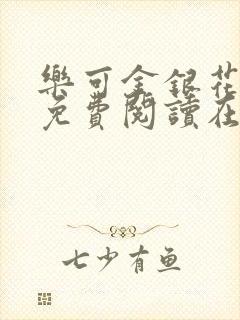 樂可金銀花
免費閱讀在
七少有魚